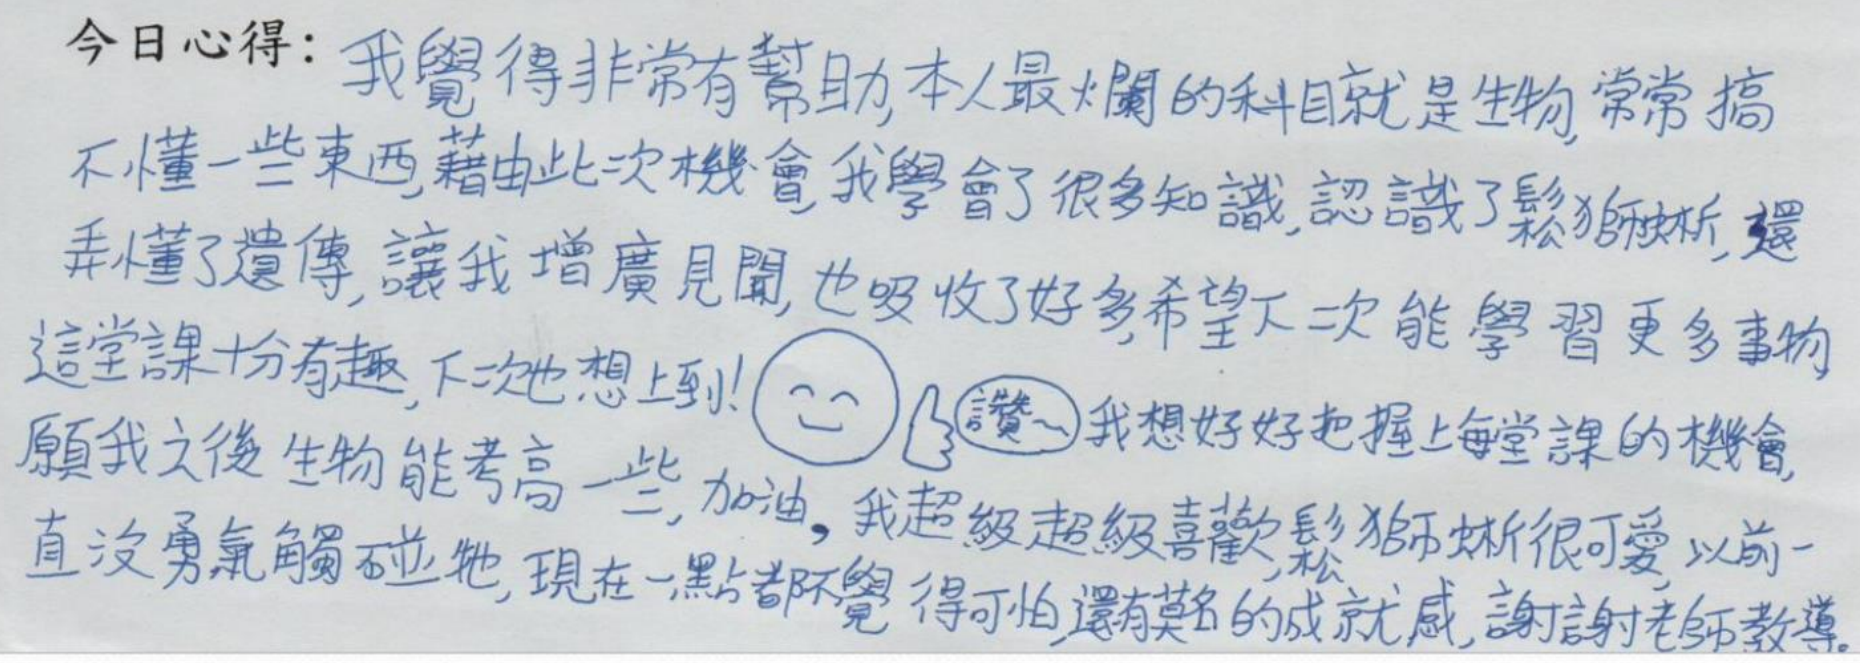 今日心得：我覺得非常有幫助,本人最爛的科目就是生物,常常搞
不懂一些東西,藉由此次機會,我學會了很多知識,認識了鬆獅蜥,還
弄懂了遺傳,讓我增廣見聞,也吸收了好多,希望下次能學習更多事物,
這堂課十分有趣,下次也想上到!讚~我想好好把握上每堂課的機會,
願我之後生物能考高一些,加油,我超級超級喜歡,鬆獅蜥很可愛,以前一
直沒勇氣觸碰牠,現在一點都不覺得可怕,還有莫名的成就感,謝謝老師教導。